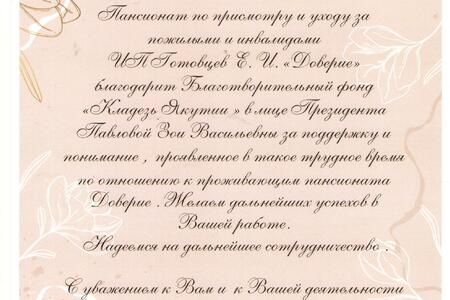 Пансионат по присмотру и уходу за
пожилыми и инвалидами
ИП Готовцев Е. И. «Доверие»
благодарит Благотворительный фонд
«Кладезь Якутии » в лице Президента
Павловой Зои Васильевны за поддержку и
понимание , проявленное в такое трудное время
по отношению к проживающим пансионата
Доверие . Желаем дальнейших успехов в
Вашей работе.
Надеемся на дальнейшее сотрудничество .
С уважением к Вам и к Вашей деятельности